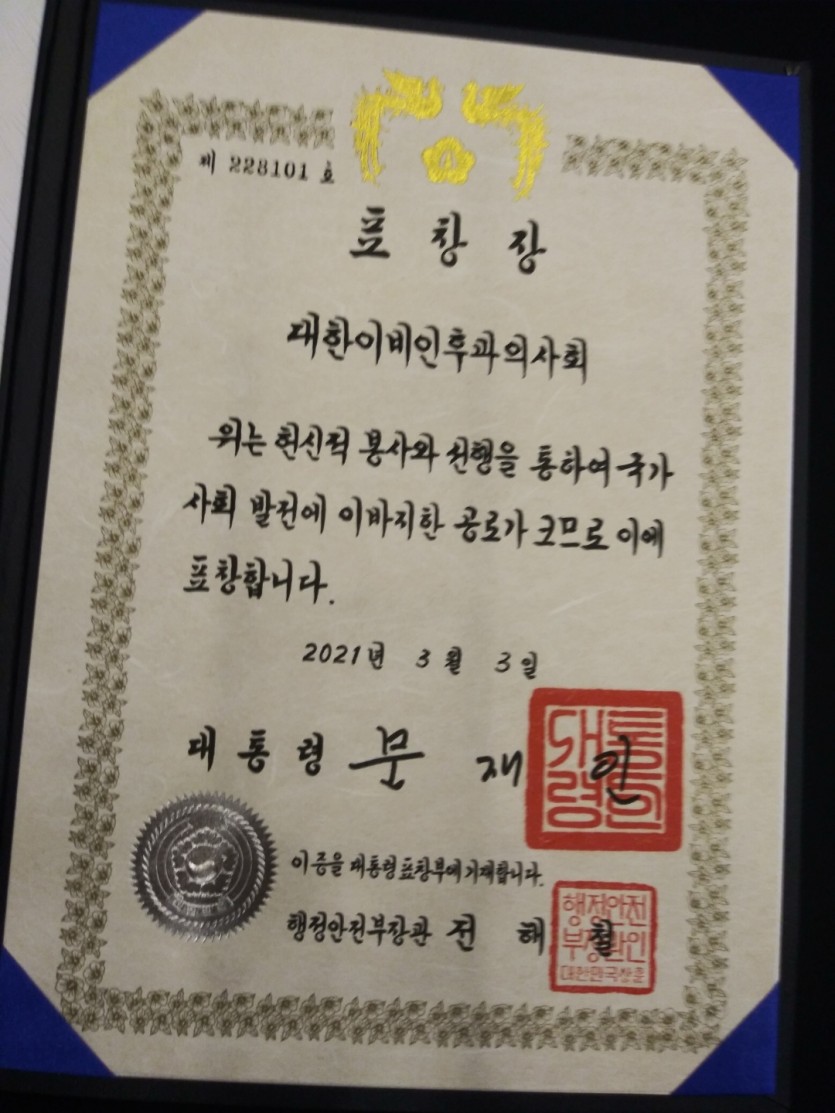 제 228101 호
표 창 장
대한이비인후과의사회
위는 헌신적 봉사와 선행을 통하여 국가
사회 발전에 이바지한 공로가 크므로 이에
표창합니다.
2021년 3월 3일
대통령 문재인
대통령의인
이 증을 대통령표창부에 기재합니다.
행정안전부장관 전해철
행정안전
부장관인
대한민국상훈